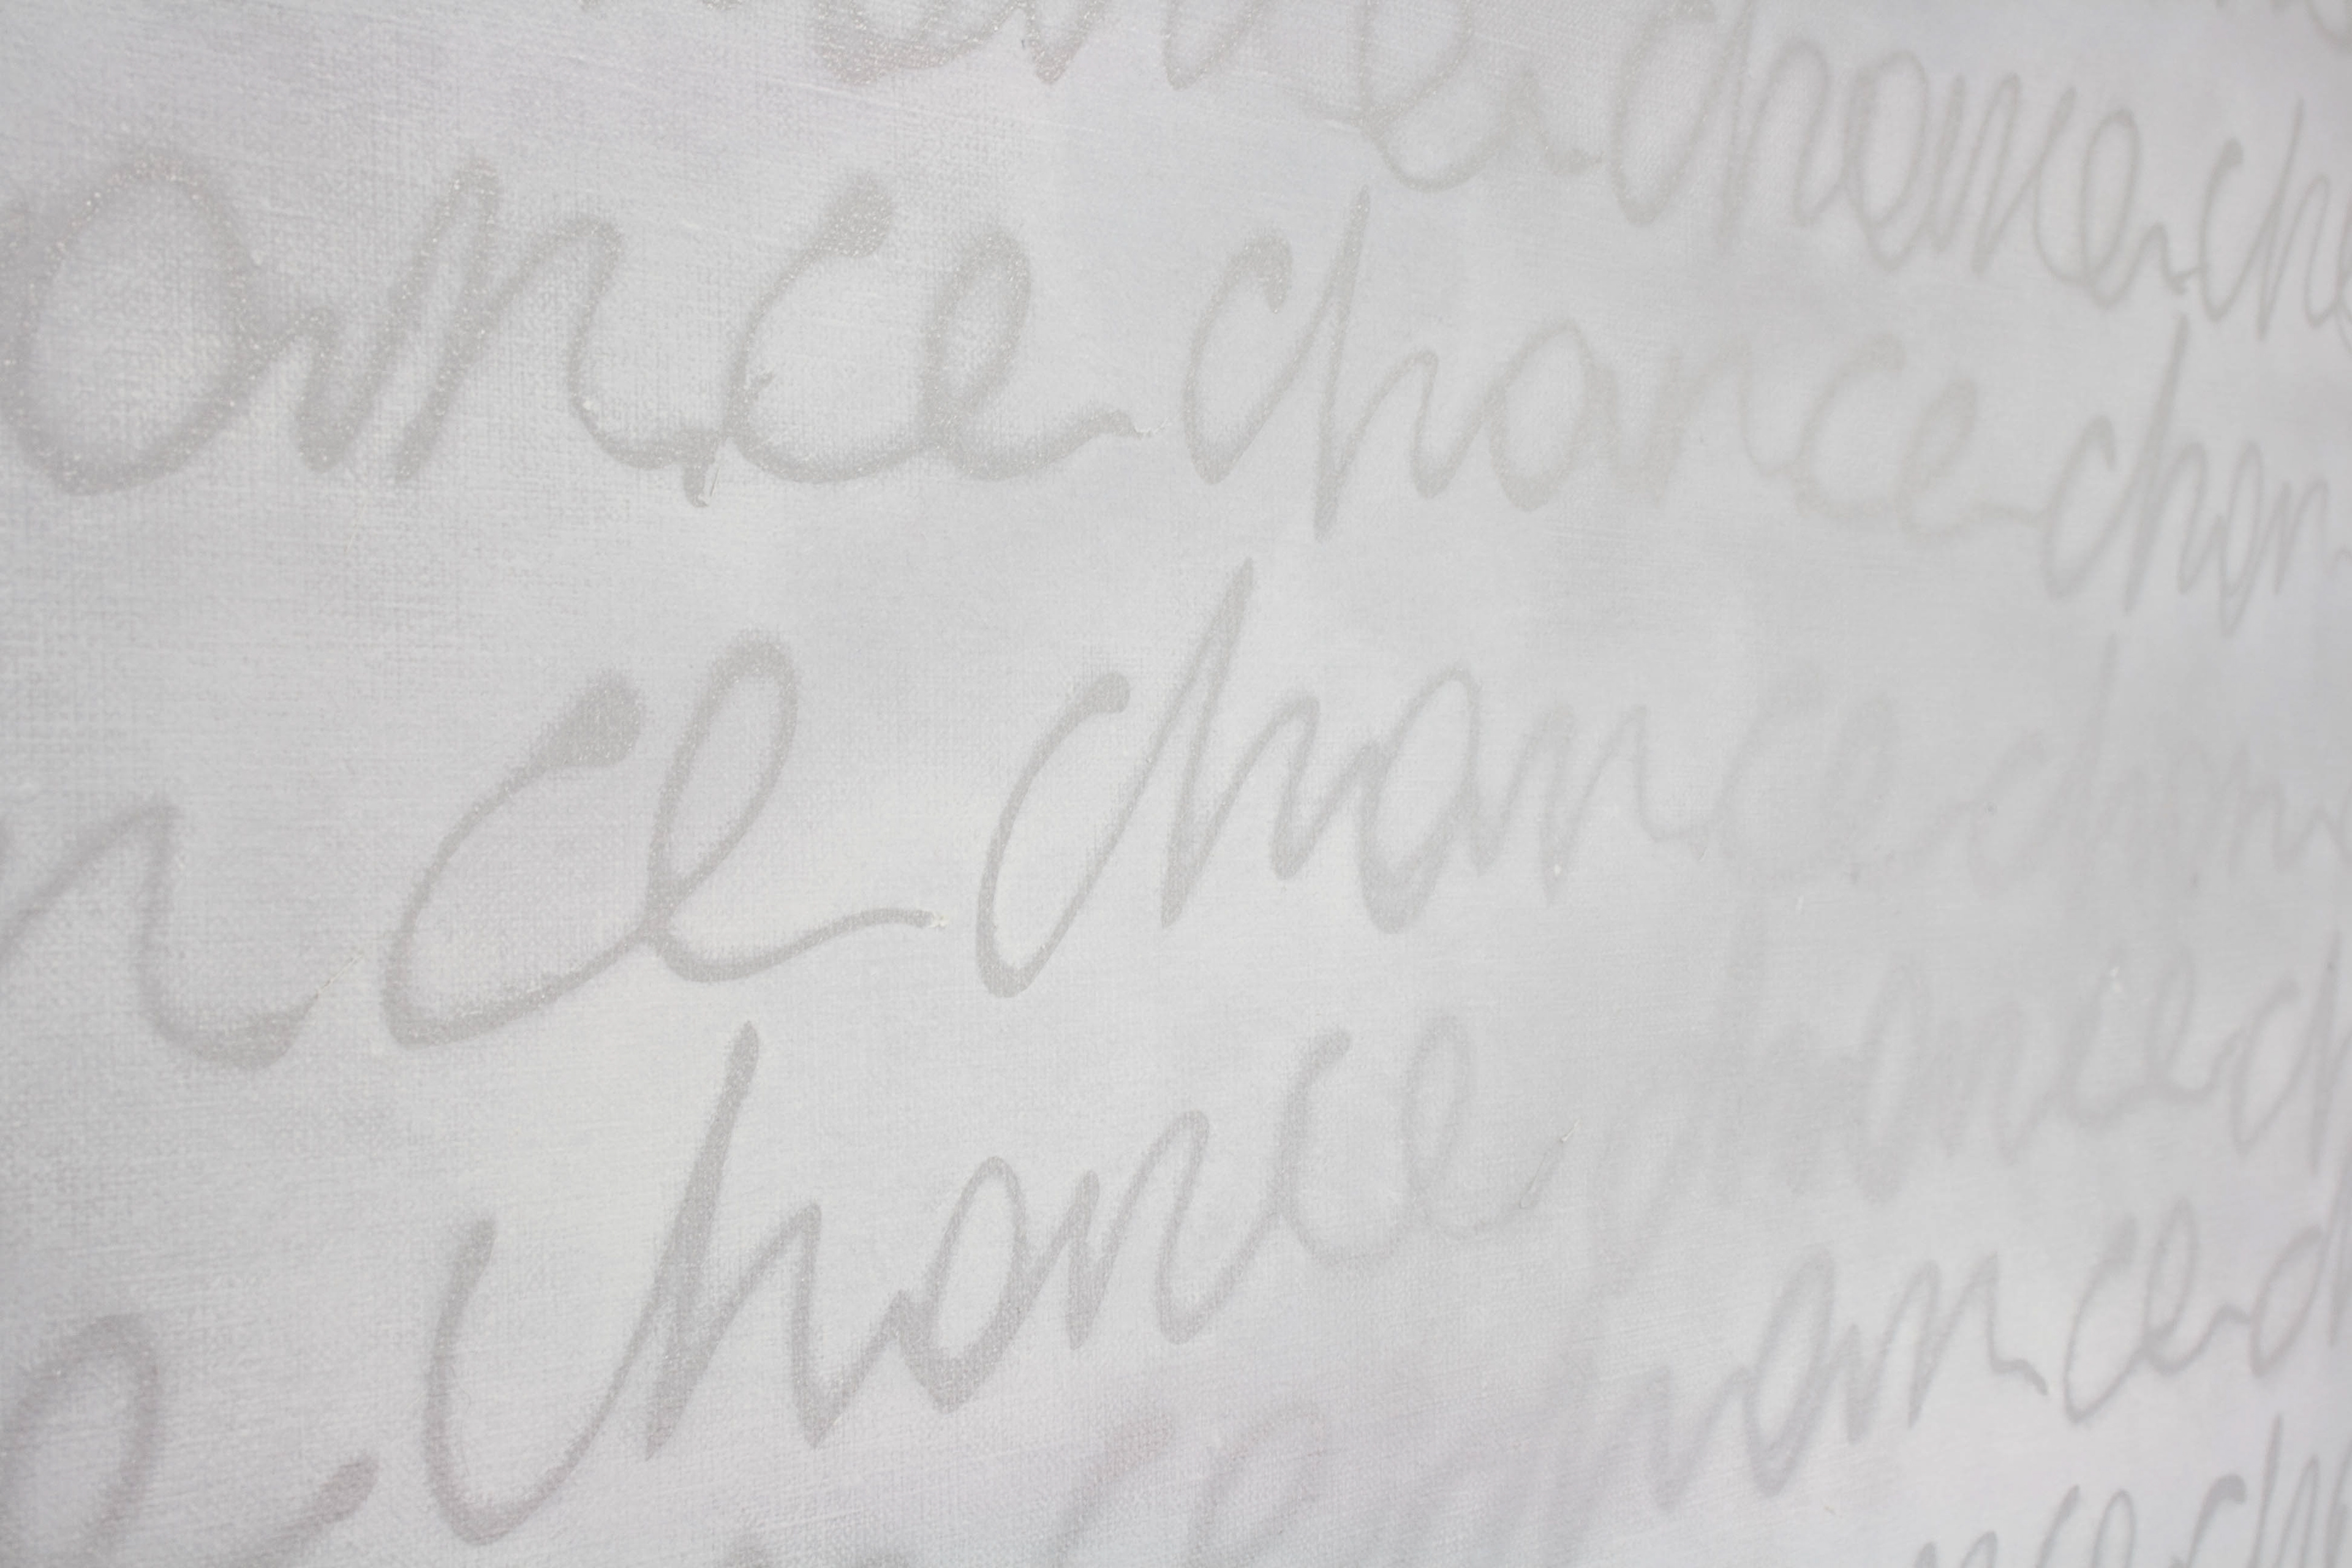 chance che
ance chance chan
nce chance chan
e chance chance ch
ce chance ch
nce ch